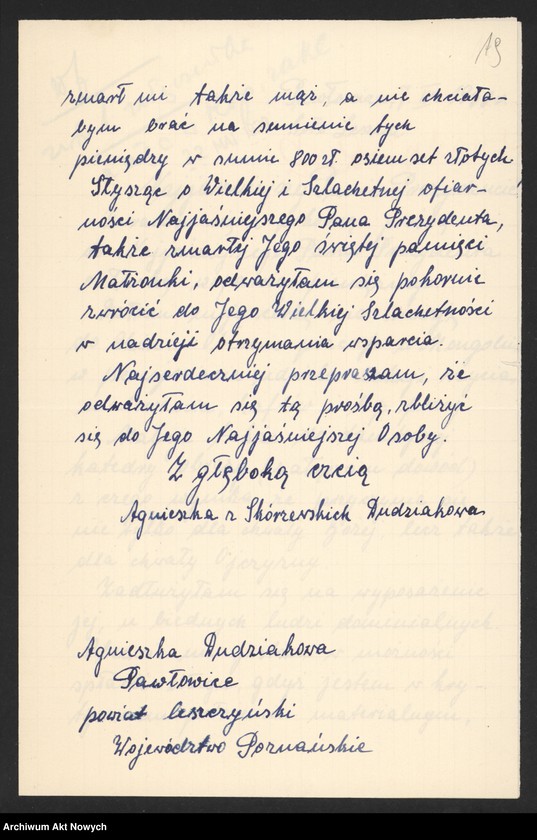 19
zmarł mi także mąż, a nie chciała-
bym brać na sumienie tych
pieniędzy w sumie 800 zł. osiemset złotych
Słysząc o Wielkiej i Szlachetnej ofiar-
ności Najjaśniejszego Pana Prezydenta,
także zmarłej Jego świętej pamięci
Małżonki, odważyłam się pokornie
zwrócić do Jego Wielkiej Szlachetności
w nadzieji otrzymania wsparcia.
Najserdeczniej przepraszam, że
odważyłam się tą prośbą, zbliżyć
się do Jego Najjaśniejszej Osoby.
Z głęboką czcią
Agnieszka z Skórzewskich Dudziakowa
Agnieszka Dudziakowa
Pawłowice
powiat leszczyński
Województwo Poznańskie
Archiwum Akt Nowych